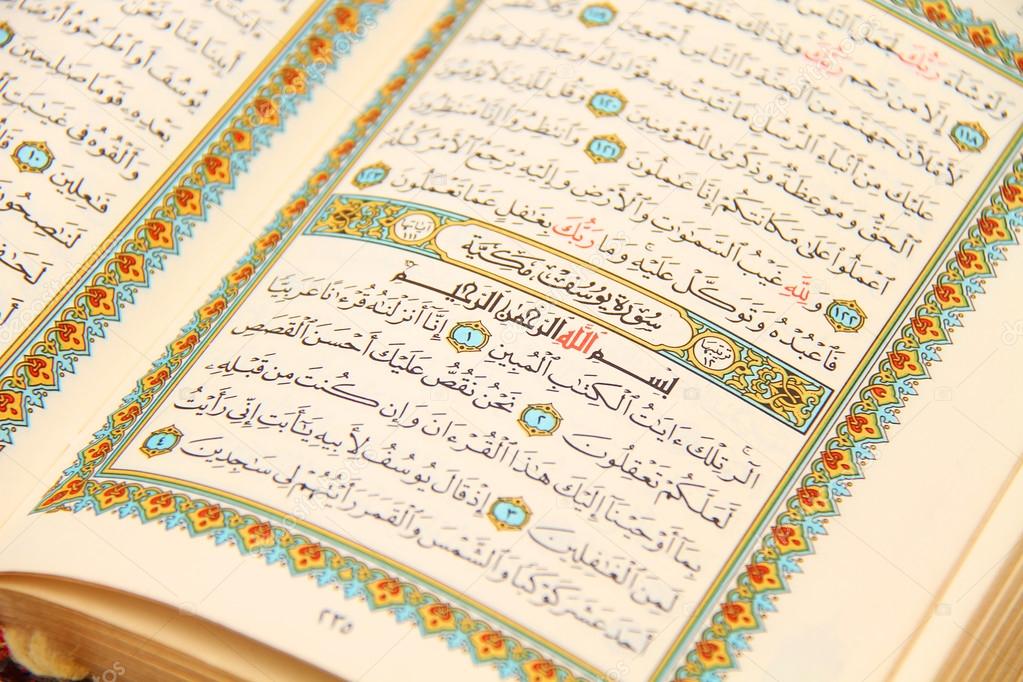 وَلَوْ شَآءَ رَبُّكَ لَجَعَلَ ٱلنَّاسَ
إِلَّا مَن رَّحِمَ رَبُّكَ وَلِذَٰلِكَ خَلَقَهُمْ وَتَمَّتْ
لَأَمْلَأَنَّ جَهَنَّمَ مِنَ ٱلْجِنَّةِ وَٱلنَّاسِ أَجْمَعِينَ ١١٩ وَكُلًّا
عَلَيْكَ مِنْ أَنۢبَآءِ ٱلرُّسُلِ مَا نُثَبِّتُ بِهِۦ فُؤَادَكَ وَجَآءَكَ فِى هَٰذِهِ
ٱلْحَقُّ وَمَوْعِظَةٌ وَذِكْرَىٰ لِلْمُؤْمِنِينَ ١٢٠ وَقُل لِّلَّذِينَ لَا يُؤْمِنُونَ
ٱعْمَلُوا۟ عَلَىٰ مَكَانَتِكُمْ إِنَّا عَٰمِلُونَ ١٢١ وَٱنتَظِرُوٓا۟ إِنَّا مُنتَظِرُونَ
١٢٢ وَلِلَّهِ غَيْبُ ٱلسَّمَٰوَٰتِ وَٱلْأَرْضِ وَإِلَيْهِ يُرْجَعُ ٱلْأَمْرُ كُلُّهُۥ
فَٱعْبُدْهُ وَتَوَكَّلْ عَلَيْهِ وَمَا رَبُّكَ بِغَٰفِلٍ عَمَّا تَعْمَلُونَ ١٢٣
ترتيبها ١٢ سُورَةُ يُوسُفَ مَكِّيَّة آياتها ١١١
بِسْمِ ٱللَّهِ ٱلرَّحْمَٰنِ ٱلرَّحِيمِ
الٓر تِلْكَ ءَايَٰتُ ٱلْكِتَٰبِ ٱلْمُبِينِ ١ إِنَّآ أَنزَلْنَٰهُ قُرْءَٰنًا عَرَبِيًّا
لَّعَلَّكُمْ تَعْقِلُونَ ٢ نَحْنُ نَقُصُّ عَلَيْكَ أَحْسَنَ ٱلْقَصَصِ
بِمَآ أَوْحَيْنَآ إِلَيْكَ هَٰذَا ٱلْقُرْءَانَ وَإِن كُنتَ مِن قَبْلِهِۦ
لَمِنَ ٱلْغَٰفِلِينَ ٣ إِذْ قَالَ يُوسُفُ لِأَبِيهِ يَٰٓأَبَتِ إِنِّى رَأَيْتُ
أَحَدَ عَشَرَ كَوْكَبًا وَٱلشَّمْسَ وَٱلْقَمَرَ رَأَيْتُهُمْ لِى سَٰجِدِينَ ٤
٢٣٥
يُوسُفَ أَوِ ٱطْرَحُوهُ
بَعْدِهِۦ قَوْمًا صَٰلِحِينَ
وَأَلْقُوهُ فِى غَيَٰبَتِ
فَٰعِلِينَ ١٠
لَنَٰصِحُونَ